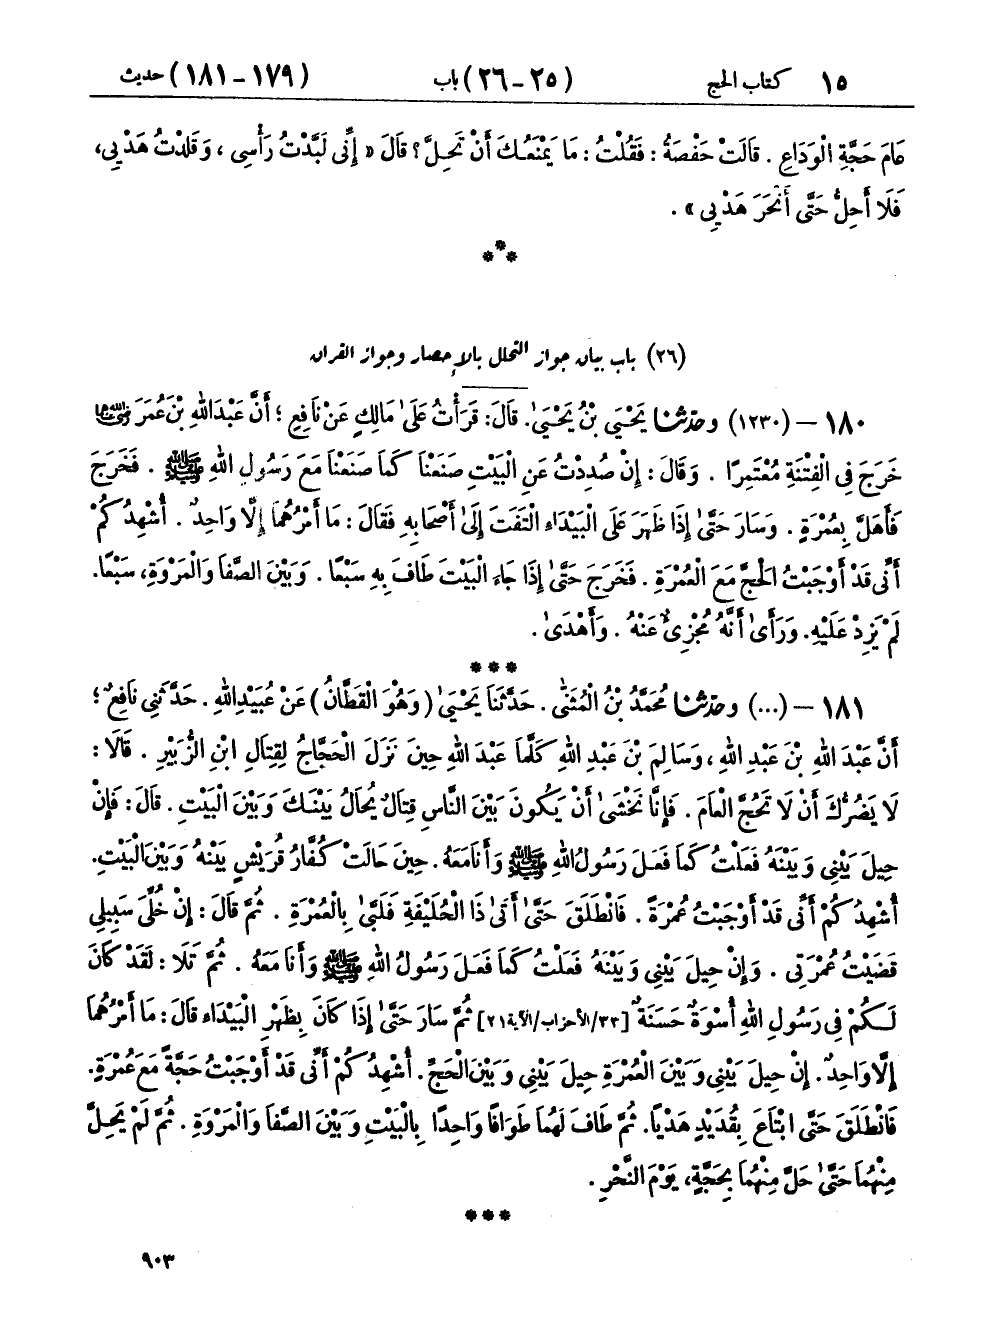 ١٥ كتاب الحج (٢٥-٢٦) باب (١٧٩-١٨١) حديث
عَامَ حَجَّةِ الْوَدَاعِ . قَالَتْ حَفْصَةُ : فَقُلْتُ : مَا يَمْنَعُكَ أَنْ تَحِلَّ ؟ قَالَ « إِنِّي لَبَّدْتُ رَأْسِي ، وَقَلَّدْتُ هَدْيِي،
فَلَا أَحِلُّ حَتَّى أَنْحَرَ هَدْيِي » .
***
(٢٦) باب بيان جواز التحلل بالإحصار وجواز القران
١٨٠ – (١٢٣٠) وحَدَّثَنَا يَحْيَىٰ بْنُ يَحْيَىٰ. قَالَ: قَرَأْتُ عَلَىٰ مَالِكٍ عَنْ نَافِعٍ ؛ أَنَّ عَبْدَ اللهِ بْنَ عُمَرَ رضي الله عنهما
خَرَجَ فِي الْفِتْنَةِ مُعْتَمِرًا . وَقَالَ : إِنْ صُدِدْتُ عَنِ الْبَيْتِ صَنَعْنَا كَمَا صَنَعْنَا مَعَ رَسُولِ اللهِ ﷺ . فَخَرَجَ
فَأَهَلَّ بِعُمْرَةٍ . وَسَارَ حَتَّىٰ إِذَا ظَهَرَ عَلَى الْبَيْدَاءِ الْتَفَتَ إِلَىٰ أَصْحَابِهِ فَقَالَ : مَا أَمْرُهُمَا إِلَّا وَاحِدٌ . أُشْهِدُكُمْ
أَنِّي قَدْ أَوْجَبْتُ الْحَجَّ مَعَ الْعُمْرَةِ . فَخَرَجَ حَتَّىٰ إِذَا جَاءَ الْبَيْتَ طَافَ بِهِ سَبْعًا . وَبَيْنَ الصَّفَا وَالْمَرْوَةِ، سَبْعًا.
لَمْ يَزِدْ عَلَيْهِ. وَرَأَىٰ أَنَّهُ مُجْزِئٌ عَنْهُ . وَأَهْدَىٰ .
***
١٨١ – (...) وحَدَّثَنَا مُحَمَّدُ بْنُ الْمُثَنَّىٰ . حَدَّثَنَا يَحْيَىٰ (وَهُوَ الْقَطَّانُ) عَنْ عُبَيْدِ اللهِ . حَدَّثَنِي نَافِعٌ ؛
أَنَّ عَبْدَ اللهِ بْنَ عَبْدِ اللهِ ، وَسَالِمَ بْنَ عَبْدِ اللهِ كَلَّمَا عَبْدَ اللهِ حِينَ نَزَلَ الْحَجَّاجُ لِقِتَالِ ابْنِ الزُّبَيْرِ . قَالَا :
لَا يَضُرُّكَ أَنْ لَا تَحُجَّ الْعَامَ . فَإِنَّا نَخْشَىٰ أَنْ يَكُونَ بَيْنَ النَّاسِ قِتَالٌ يُحَالُ بَيْنَكَ وَبَيْنَ الْبَيْتِ . قَالَ : فَإِنْ
حِيلَ بَيْنِي وَبَيْنَهُ فَعَلْتُ كَمَا فَعَلَ رَسُولُ اللهِ ﷺ وَأَنَا مَعَهُ . حِينَ حَالَتْ كُفَّارُ قُرَيْشٍ بَيْنَهُ وَبَيْنَ الْبَيْتِ.
أُشْهِدُكُمْ أَنِّي قَدْ أَوْجَبْتُ عُمْرَةً . فَانْطَلَقَ حَتَّىٰ أَتَىٰ ذَا الْحُلَيْفَةِ فَلَبَّىٰ بِالْعُمْرَةِ . ثُمَّ قَالَ : إِنْ خُلِّيَ سَبِيلِي
قَضَيْتُ عُمْرَتِي . وَإِنْ حِيلَ بَيْنِي وَبَيْنَهُ فَعَلْتُ كَمَا فَعَلَ رَسُولُ اللهِ ﷺ وَأَنَا مَعَهُ . ثُمَّ تَلَا : لَقَدْ كَانَ
لَكُمْ فِي رَسُولِ اللهِ أُسْوَةٌ حَسَنَةٌ [٣٣/الأحزاب/الآية ٢١] ثُمَّ سَارَ حَتَّىٰ إِذَا كَانَ بِظَهْرِ الْبَيْدَاءِ قَالَ : مَا أَمْرُهُمَا
إِلَّا وَاحِدٌ . إِنْ حِيلَ بَيْنِي وَبَيْنَ الْعُمْرَةِ حِيلَ بَيْنِي وَبَيْنَ الْحَجِّ . أُشْهِدُكُمْ أَنِّي قَدْ أَوْجَبْتُ حَجَّةً مَعَ عُمْرَةٍ.
فَانْطَلَقَ حَتَّى ابْتَاعَ بِقُدَيْدٍ هَدْيًا. ثُمَّ طَافَ لَهُمَا طَوَافًا وَاحِدًا بِالْبَيْتِ وَبَيْنَ الصَّفَا وَالْمَرْوَةِ . ثُمَّ لَمْ يَحِلَّ
مِنْهُمَا حَتَّىٰ حَلَّ مِنْهُمَا بِحَجَّةٍ، يَوْمَ النَّحْرِ .
***
٩٠٣